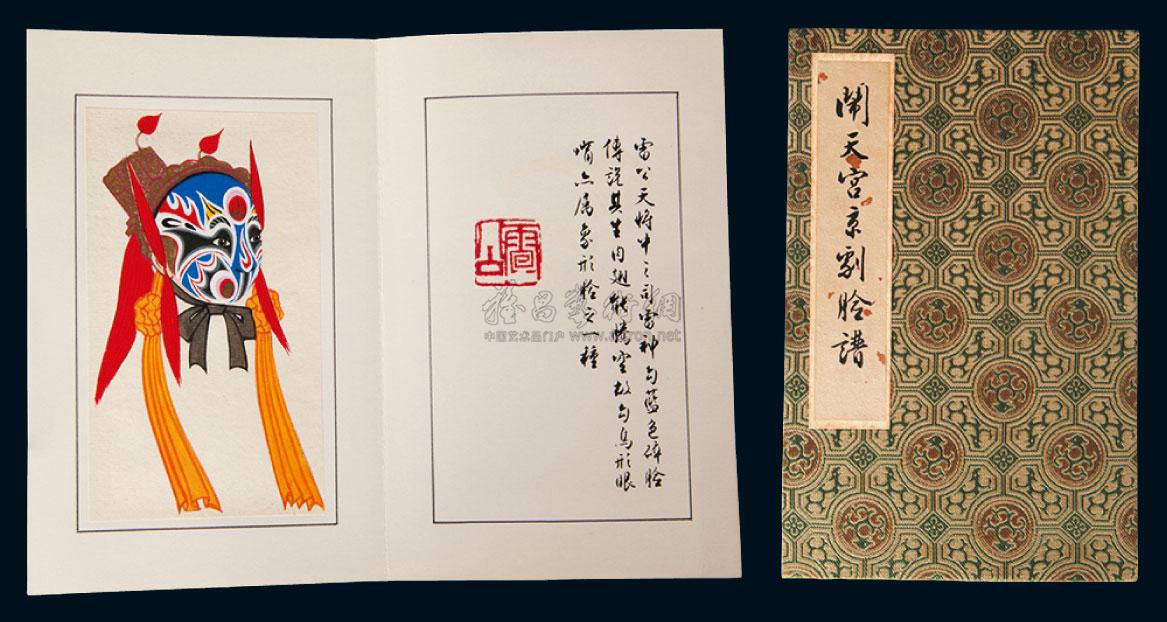 雷公天將中之司雷神勾藍色碎臉
傳説其生肉翅能騰空故勾鳥形眼
嘴亦屬象形臉之一種
雷公
鬧天宮京劇臉譜
中国艺术品门户